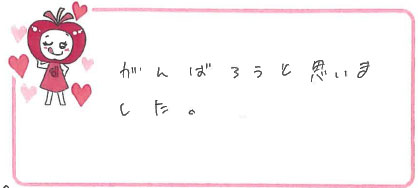 がんばろうと思いま
した。